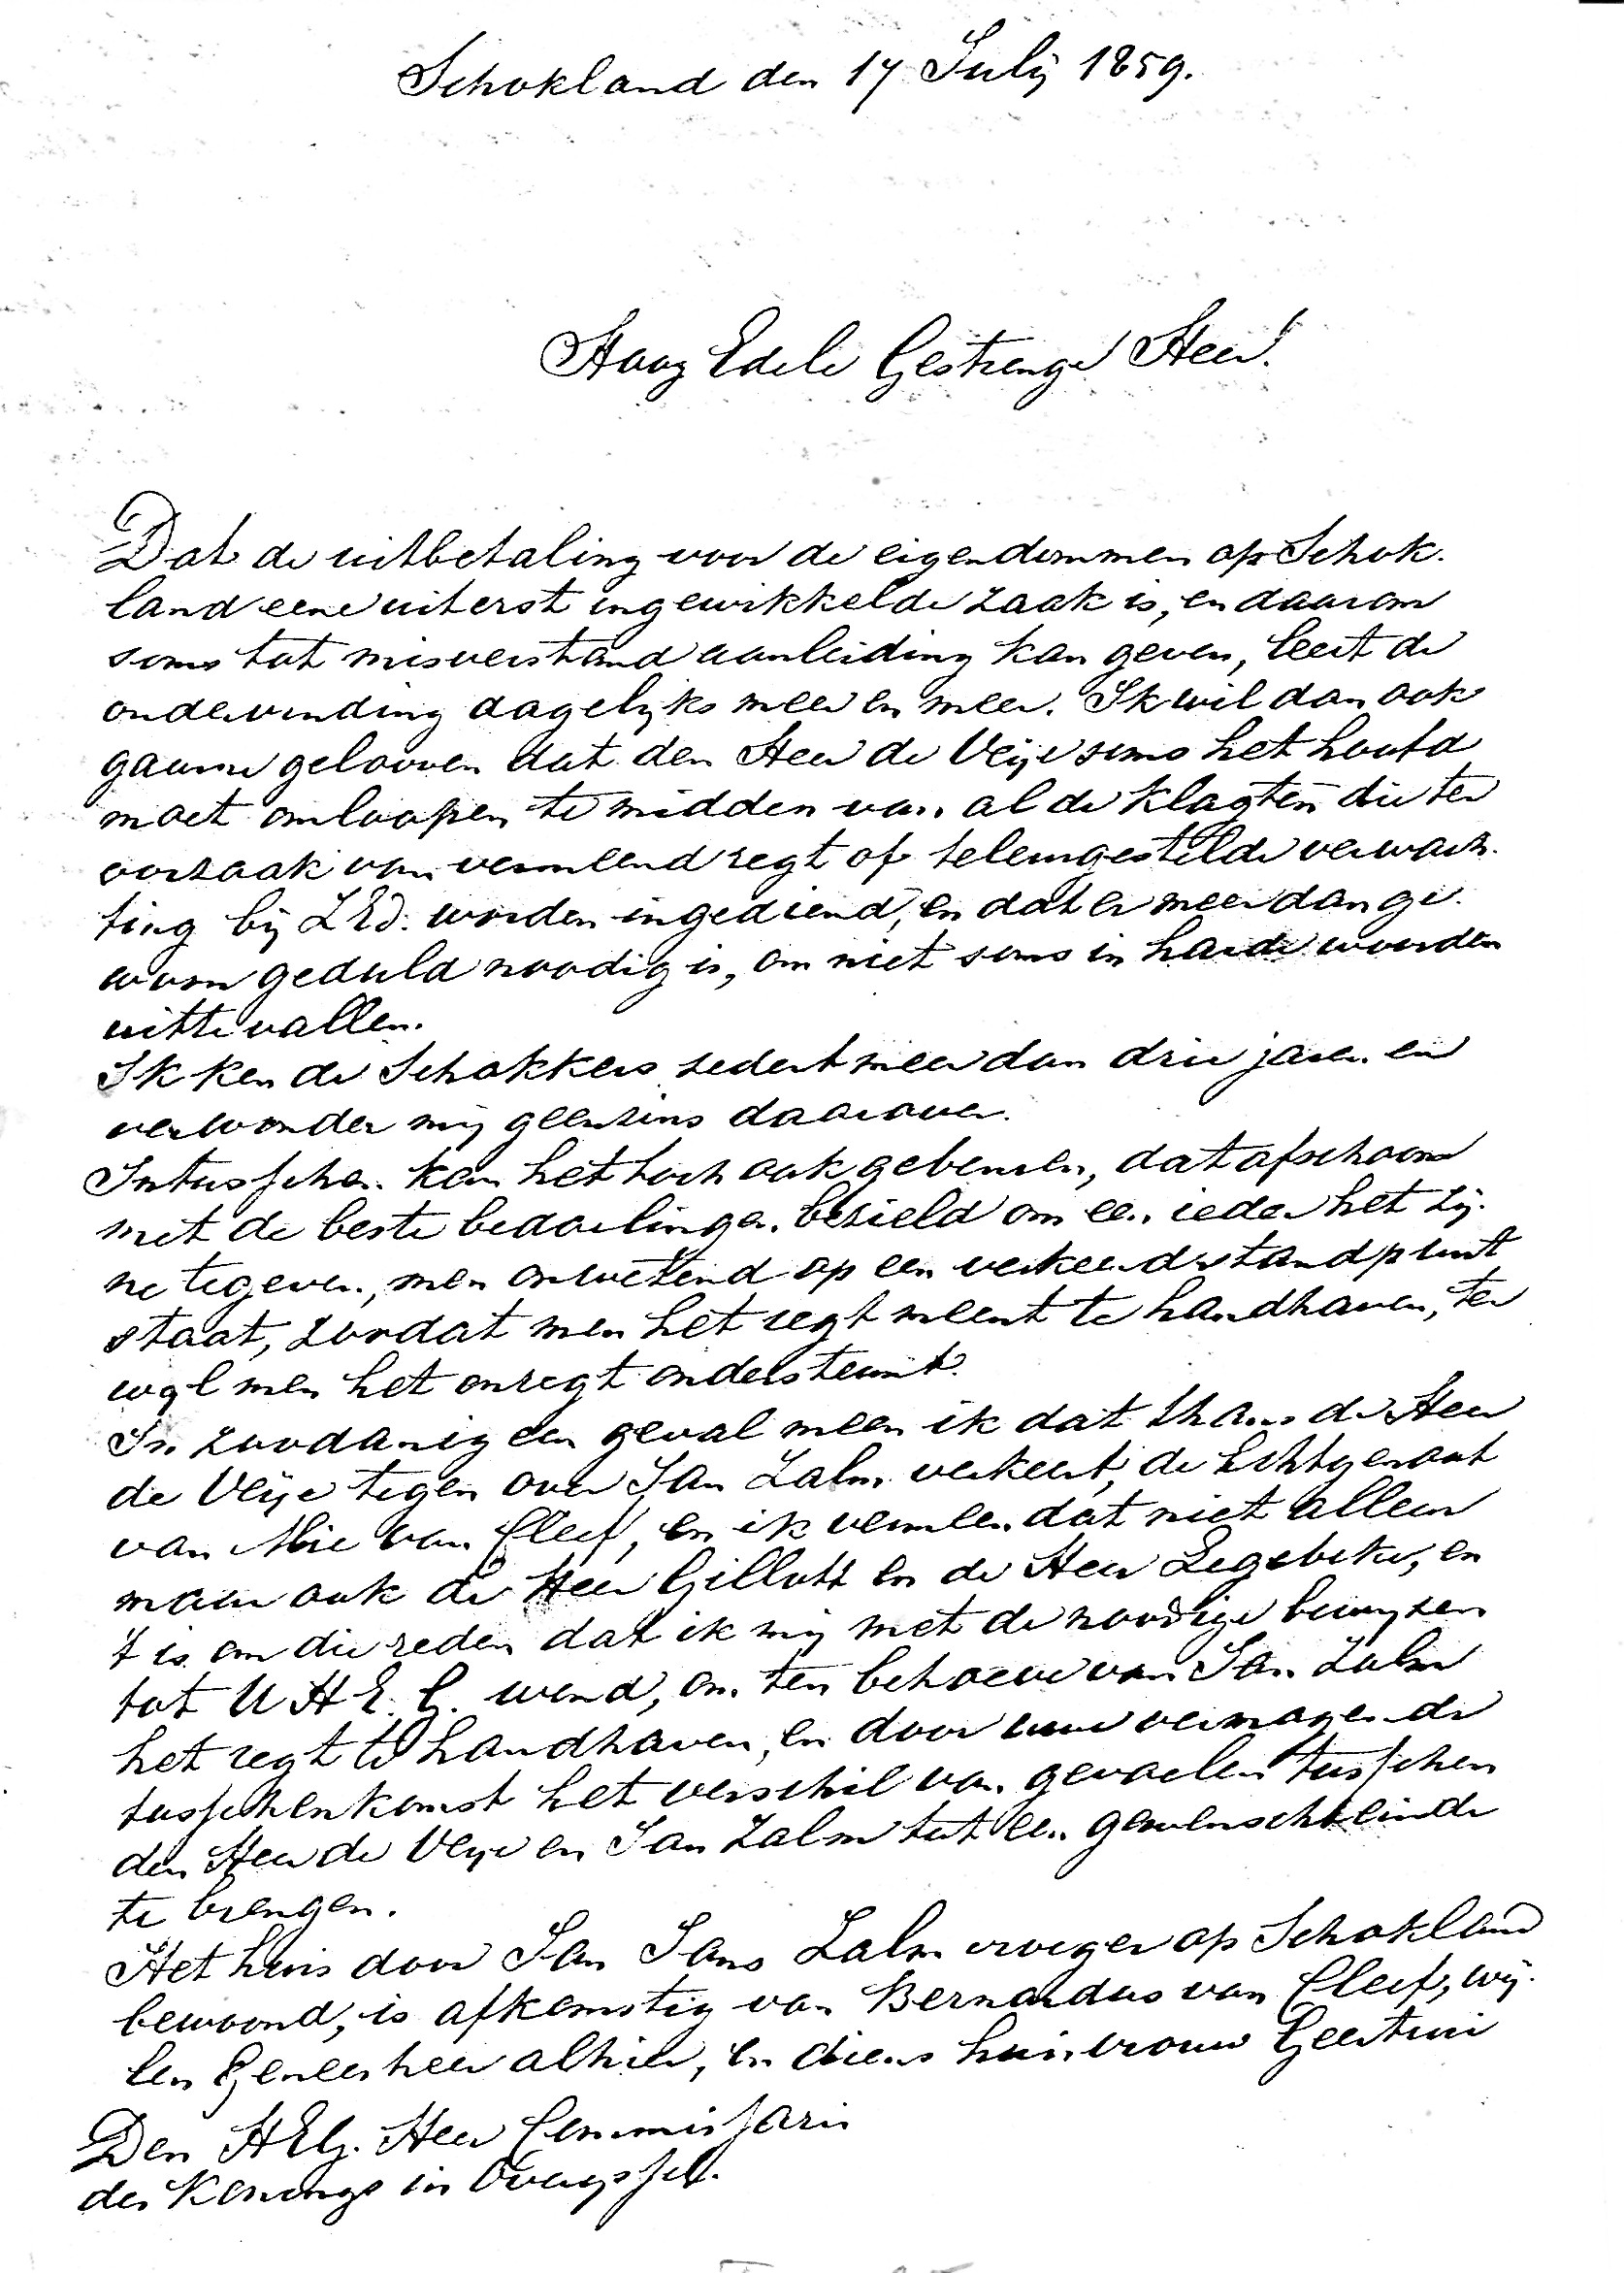 Schokland den 17 Julij 1859.
Hoog Edele Gestrenge Heer!
Dat de uitbetaling voor de eigendommen op Schok-
land eene uiterst ingewikkelde zaak is, en daarom
soms tot misverstand aanleiding kan geven, leert de
ondervinding dagelyks meer en meer. Ik wil dan ook
gaarne gelooven dat den Heer de Veije soms het hoofd
moet omloopen te midden van al de klagten die ter
oorzaak van vermeend regt of teleurgestelde verwach-
ting bij ZEd: worden ingediend, en dat er meer dan ge-
woon geduld noodig is, om niet soms in harde woorden
uittevallen.
Ik ken de Schokkers sedert meer dan drie jaren en
verwonder mij geenzins daarover.
Intusschen kan het toch ook gebeuren, dat ofschoon
met de beste bedoelingen bezield om een ieder het zij-
ne tegeven, men onwetend op een verkeerd standpunt
staat, zoodat men het regt meent te handhaven, ter
wyl men het onregt ondersteunt.
In zoodanig een geval meen ik dat thans de Heer
de Veije tegen over Jan Zalm verkeert, de Echtgenoot
van Mie van Cleef, en ik vermeen dat niet alleen
maar ook de Heer Gillott en de Heer Legebeke, en
't is om die reden dat ik mij met de noodige bewyzen
tot U H E. G. wend, om ten behoeve van Jan Zalm
het regt te handhaven, en door uwe vermogende
tusschenkomst het verschil van gevoelen tusschen
den Heer de Veye en Jan Zalm tot een gewenscht einde
te brengen.
Het huis door Jan Jans Zalm vroeger op Schokland
bewoond, is afkomstig van Bernardus van Cleef, wij-
len Geneesheer alhier, en diens huisvrouw Geertrui
Den HEG. Heer Commissaris
des Konings in Overyssel.